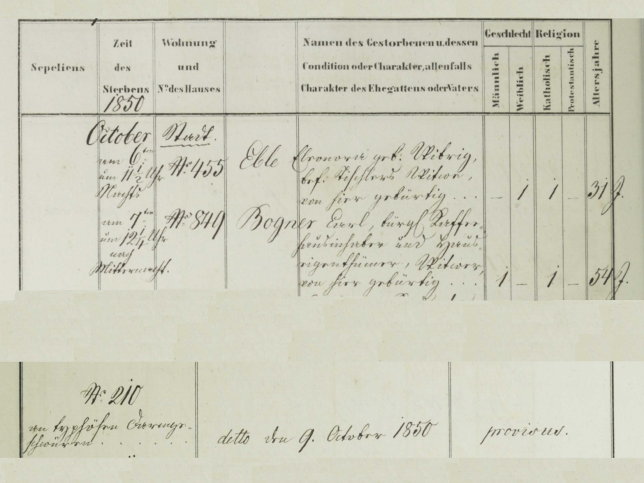 Sepeliens
Zeit
des
Sterbens
1850
Wohnung
und
No des Hauses
Namen des Gestorbenen u. dessen
Condition oder Charakter, allenfalls
Charakter des Ehegattens oder Vaters
Geschlecht
Männlich
Weiblich
Religion
Katholisch
Protestantisch
Altersjahre
October
am 6ten
um 11 1/2 Uhr
Nachts
Stadt.
No 455
Eble Eleonora geb. Wibrig,
bef. Tischlers Witwe,
von hier gebürtig . . . – 1 1 – 31 J.
am 7ten
um 12 1/4 Uhr
nach
Mitternacht.
No 849
Bogner Carl, bürgl Kaffee-
hausinhaber und Haus-
eigenthümer, Witwer,
von hier gebürtig . . . 1 – 1 – 54 J.
No 210
an typhösen Darmge-
schwüren . . . . . .
ditto den 9. October 1850
provisus.